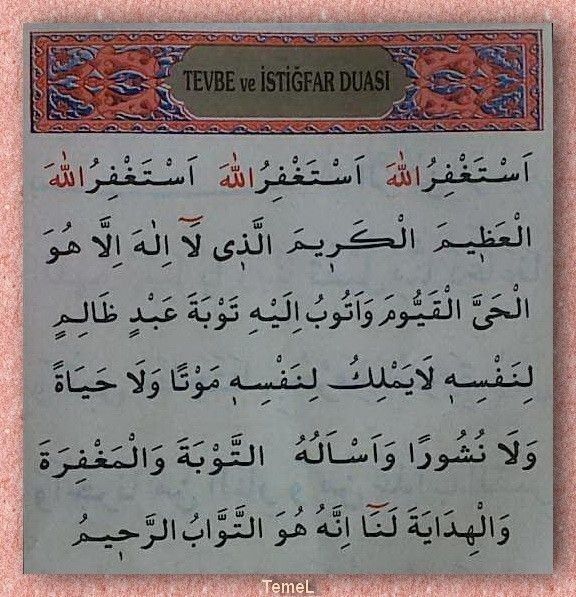 TEVBE ve İSTİĞFAR DUASI
اَسْتَغْفِرُ اللهَ اَسْتَغْفِرُ اللهَ اَسْتَغْفِرُ اللهَ
الْعَظٖيمَ الْكَرٖيمَ الَّذٖى لَٓا اِلٰهَ اِلَّا هُوَ
الْحَىَّ الْقَيُّومَ وَاَتُوبُ اِلَيْهِ تَوْبَةَ عَبْدٍ ظَالِمٍ
لِنَفْسِهٖ لَايَمْلِكُ لِنَفْسِهٖ مَوْتًا وَلَا حَيَاةً
وَلَا نُشُورًا وَاَسْاَلُهُ التَّوْبَةَ وَالْمَغْفِرَةَ
وَالْهِدَايَةَ لَنَٓا اِنَّهُ هُوَ التَّوَّابُ الرَّحٖيمُ
TemeL